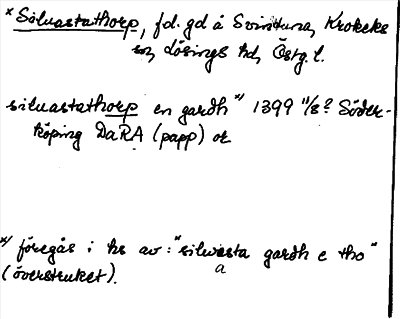 * Siluastathorp, fd. gd å Svintuna, Krokeks
sn, Lösings hd, Östg. l.
siluastathorp en gardh *) 1399 11/8? Söder-
köping DaRA (papp) or
*) föregås i hs av: "silwasta gardh e tho"
a
(överstruket).